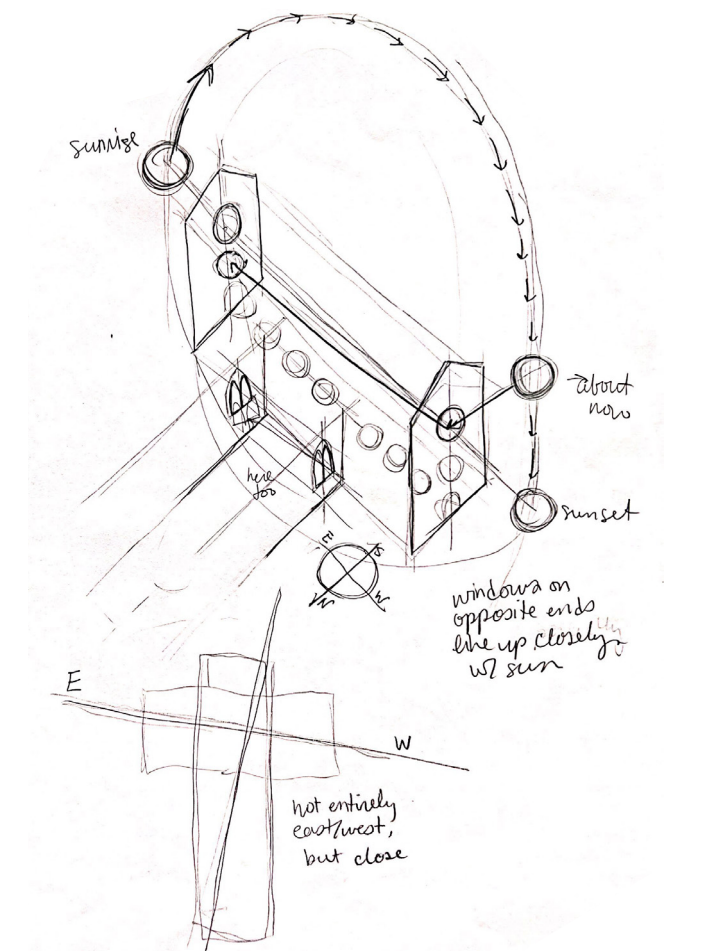 sunrise
→ about
now
here
too
sunset
E
S
N
W
windows on
opposite ends
line up closely
w/ sun
E
W
not entirely
east/west,
but close